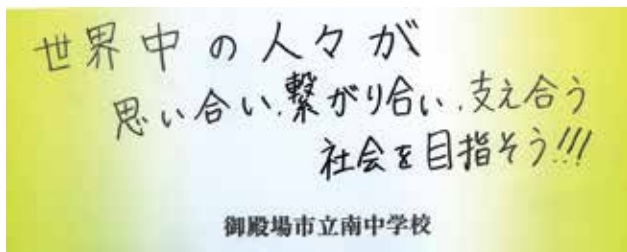 世界中の人々が
思い合い、繋がり合い、支え合う
社会を目指そう!!!
御殿場市立南中学校